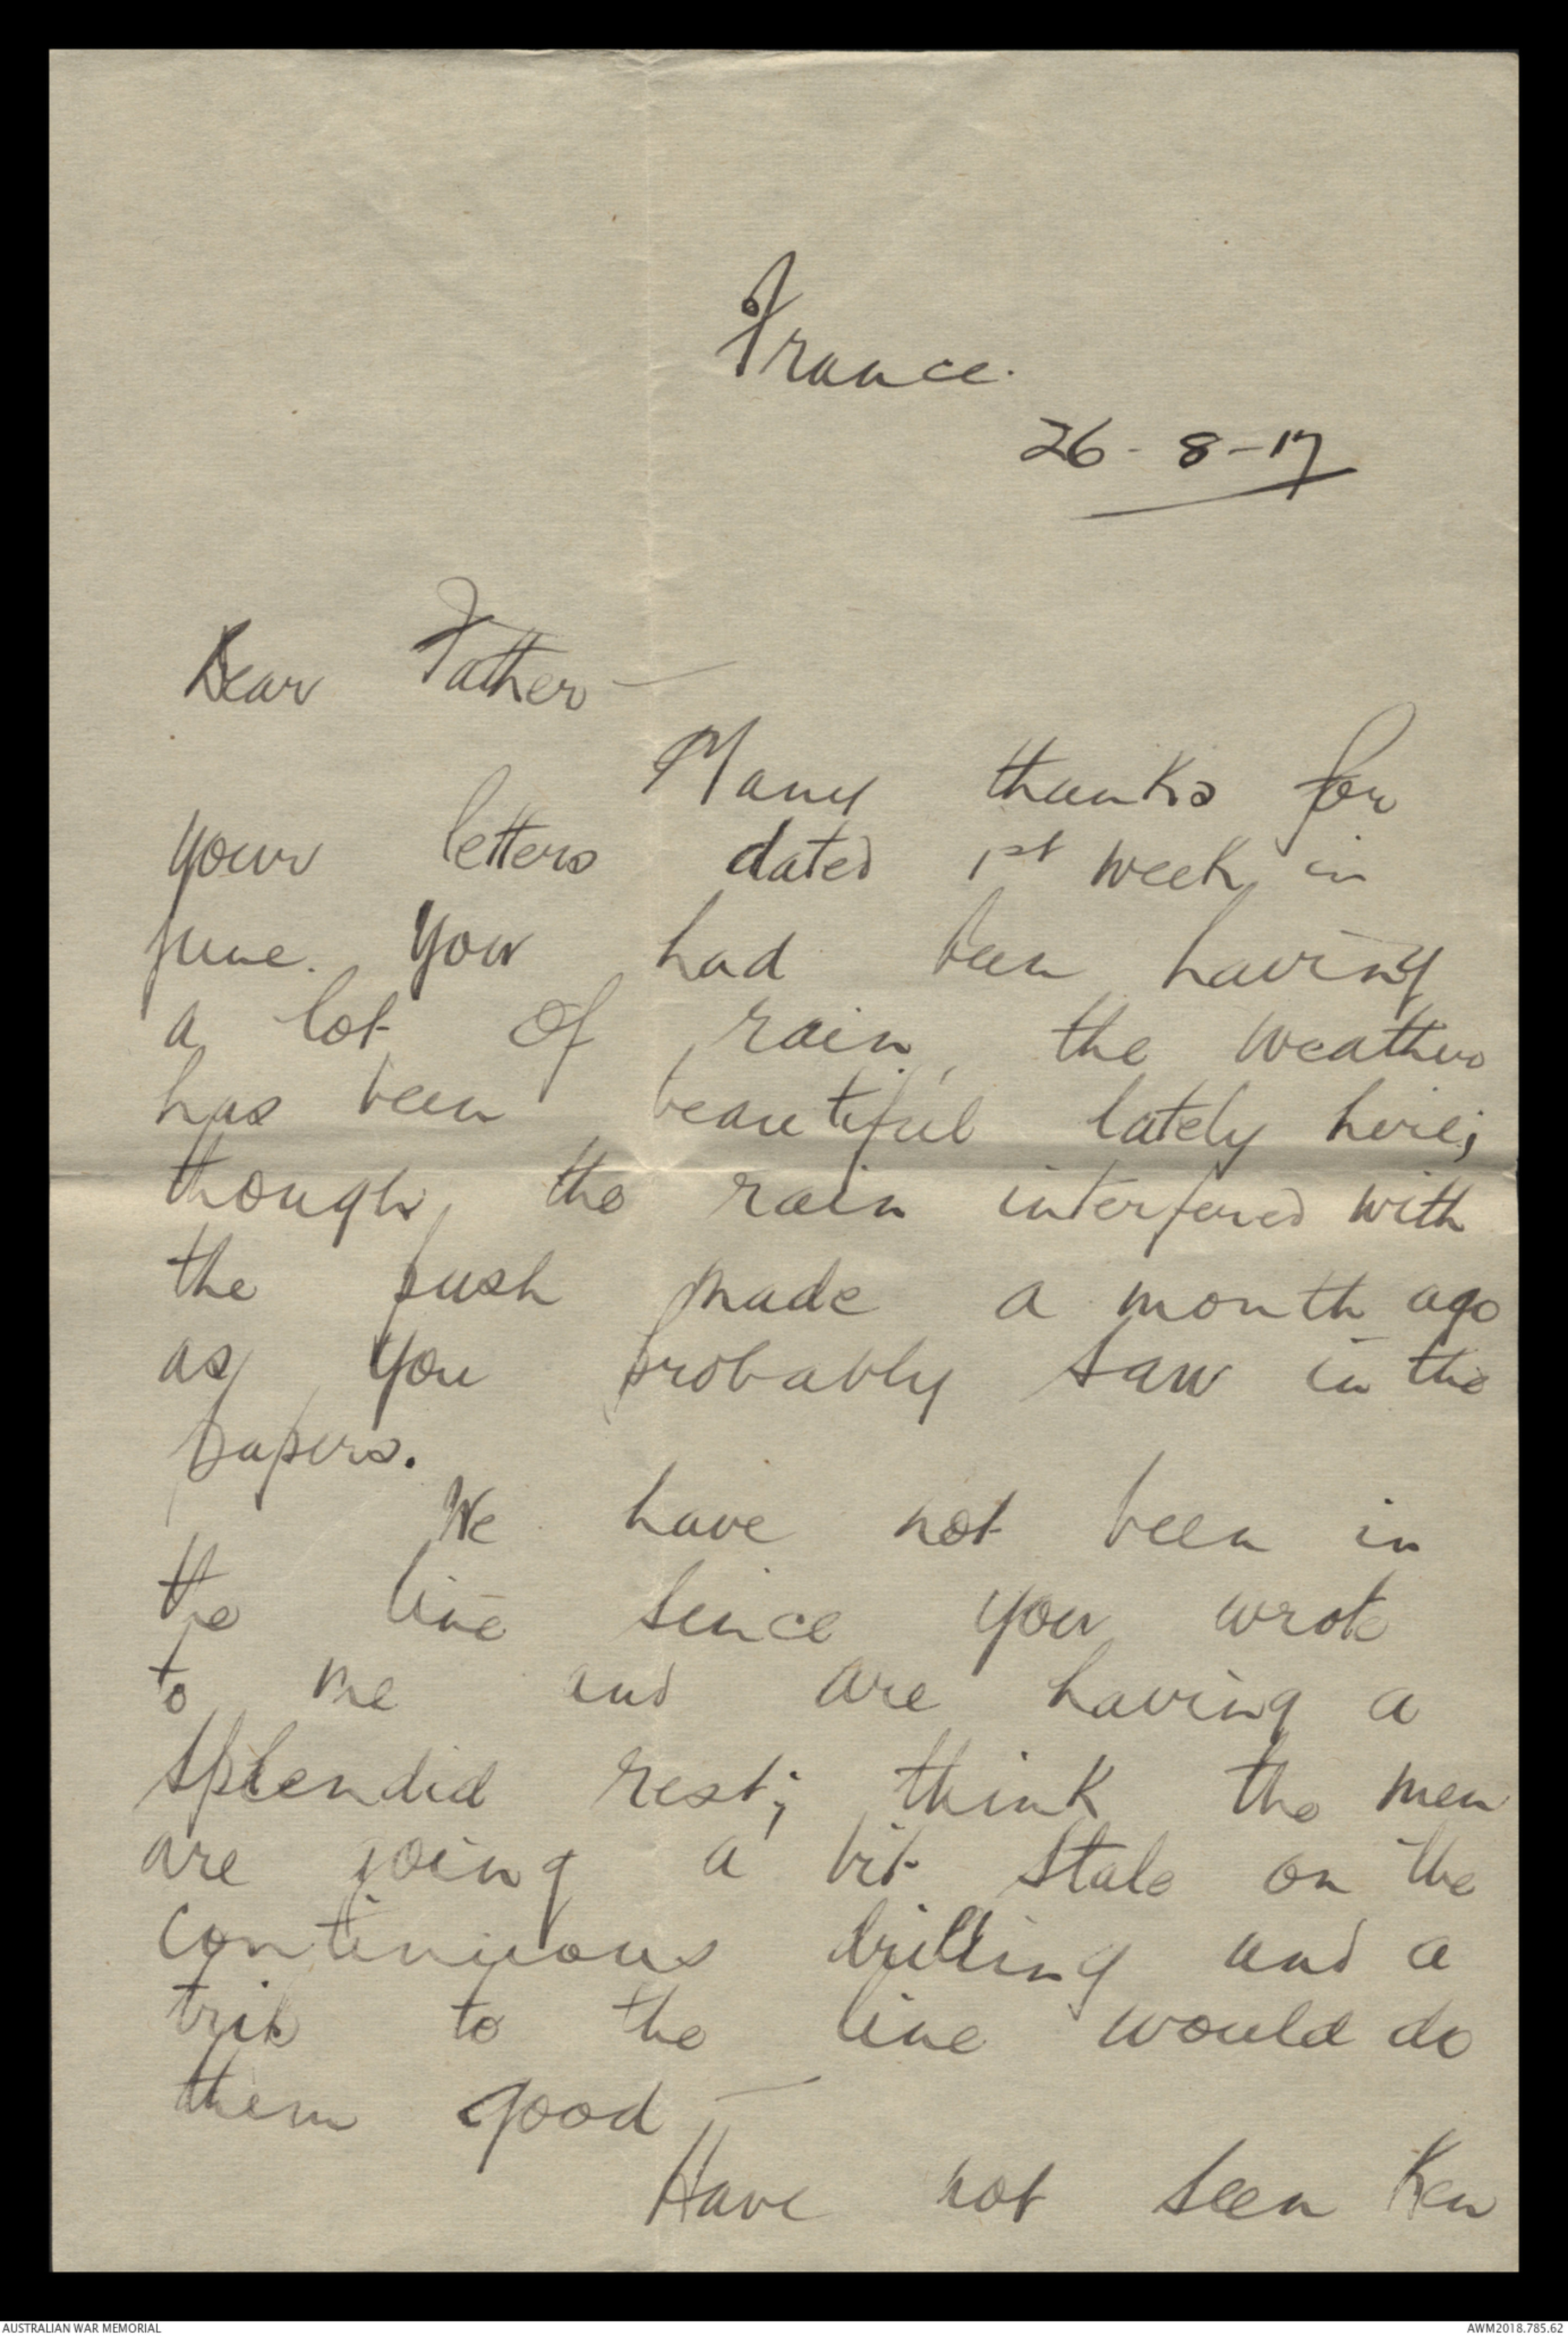 France.
26-8-17
Dear Father—
Many thanks for
your letters dated 1st week in
June. You had been having
a lot of rain, the weather
has been beautiful lately here;
though the rain interfered with
the push made a month ago
as you probably saw in the
papers.
We have not been in
the line since you wrote
to me and are having a
splendid rest; think the men
are going a bit stale on the
continuous drilling and a
trip to the line would do
them good —
Have not seen Ken
AUSTRALIAN WAR MEMORIAL
AWM2018.785.62